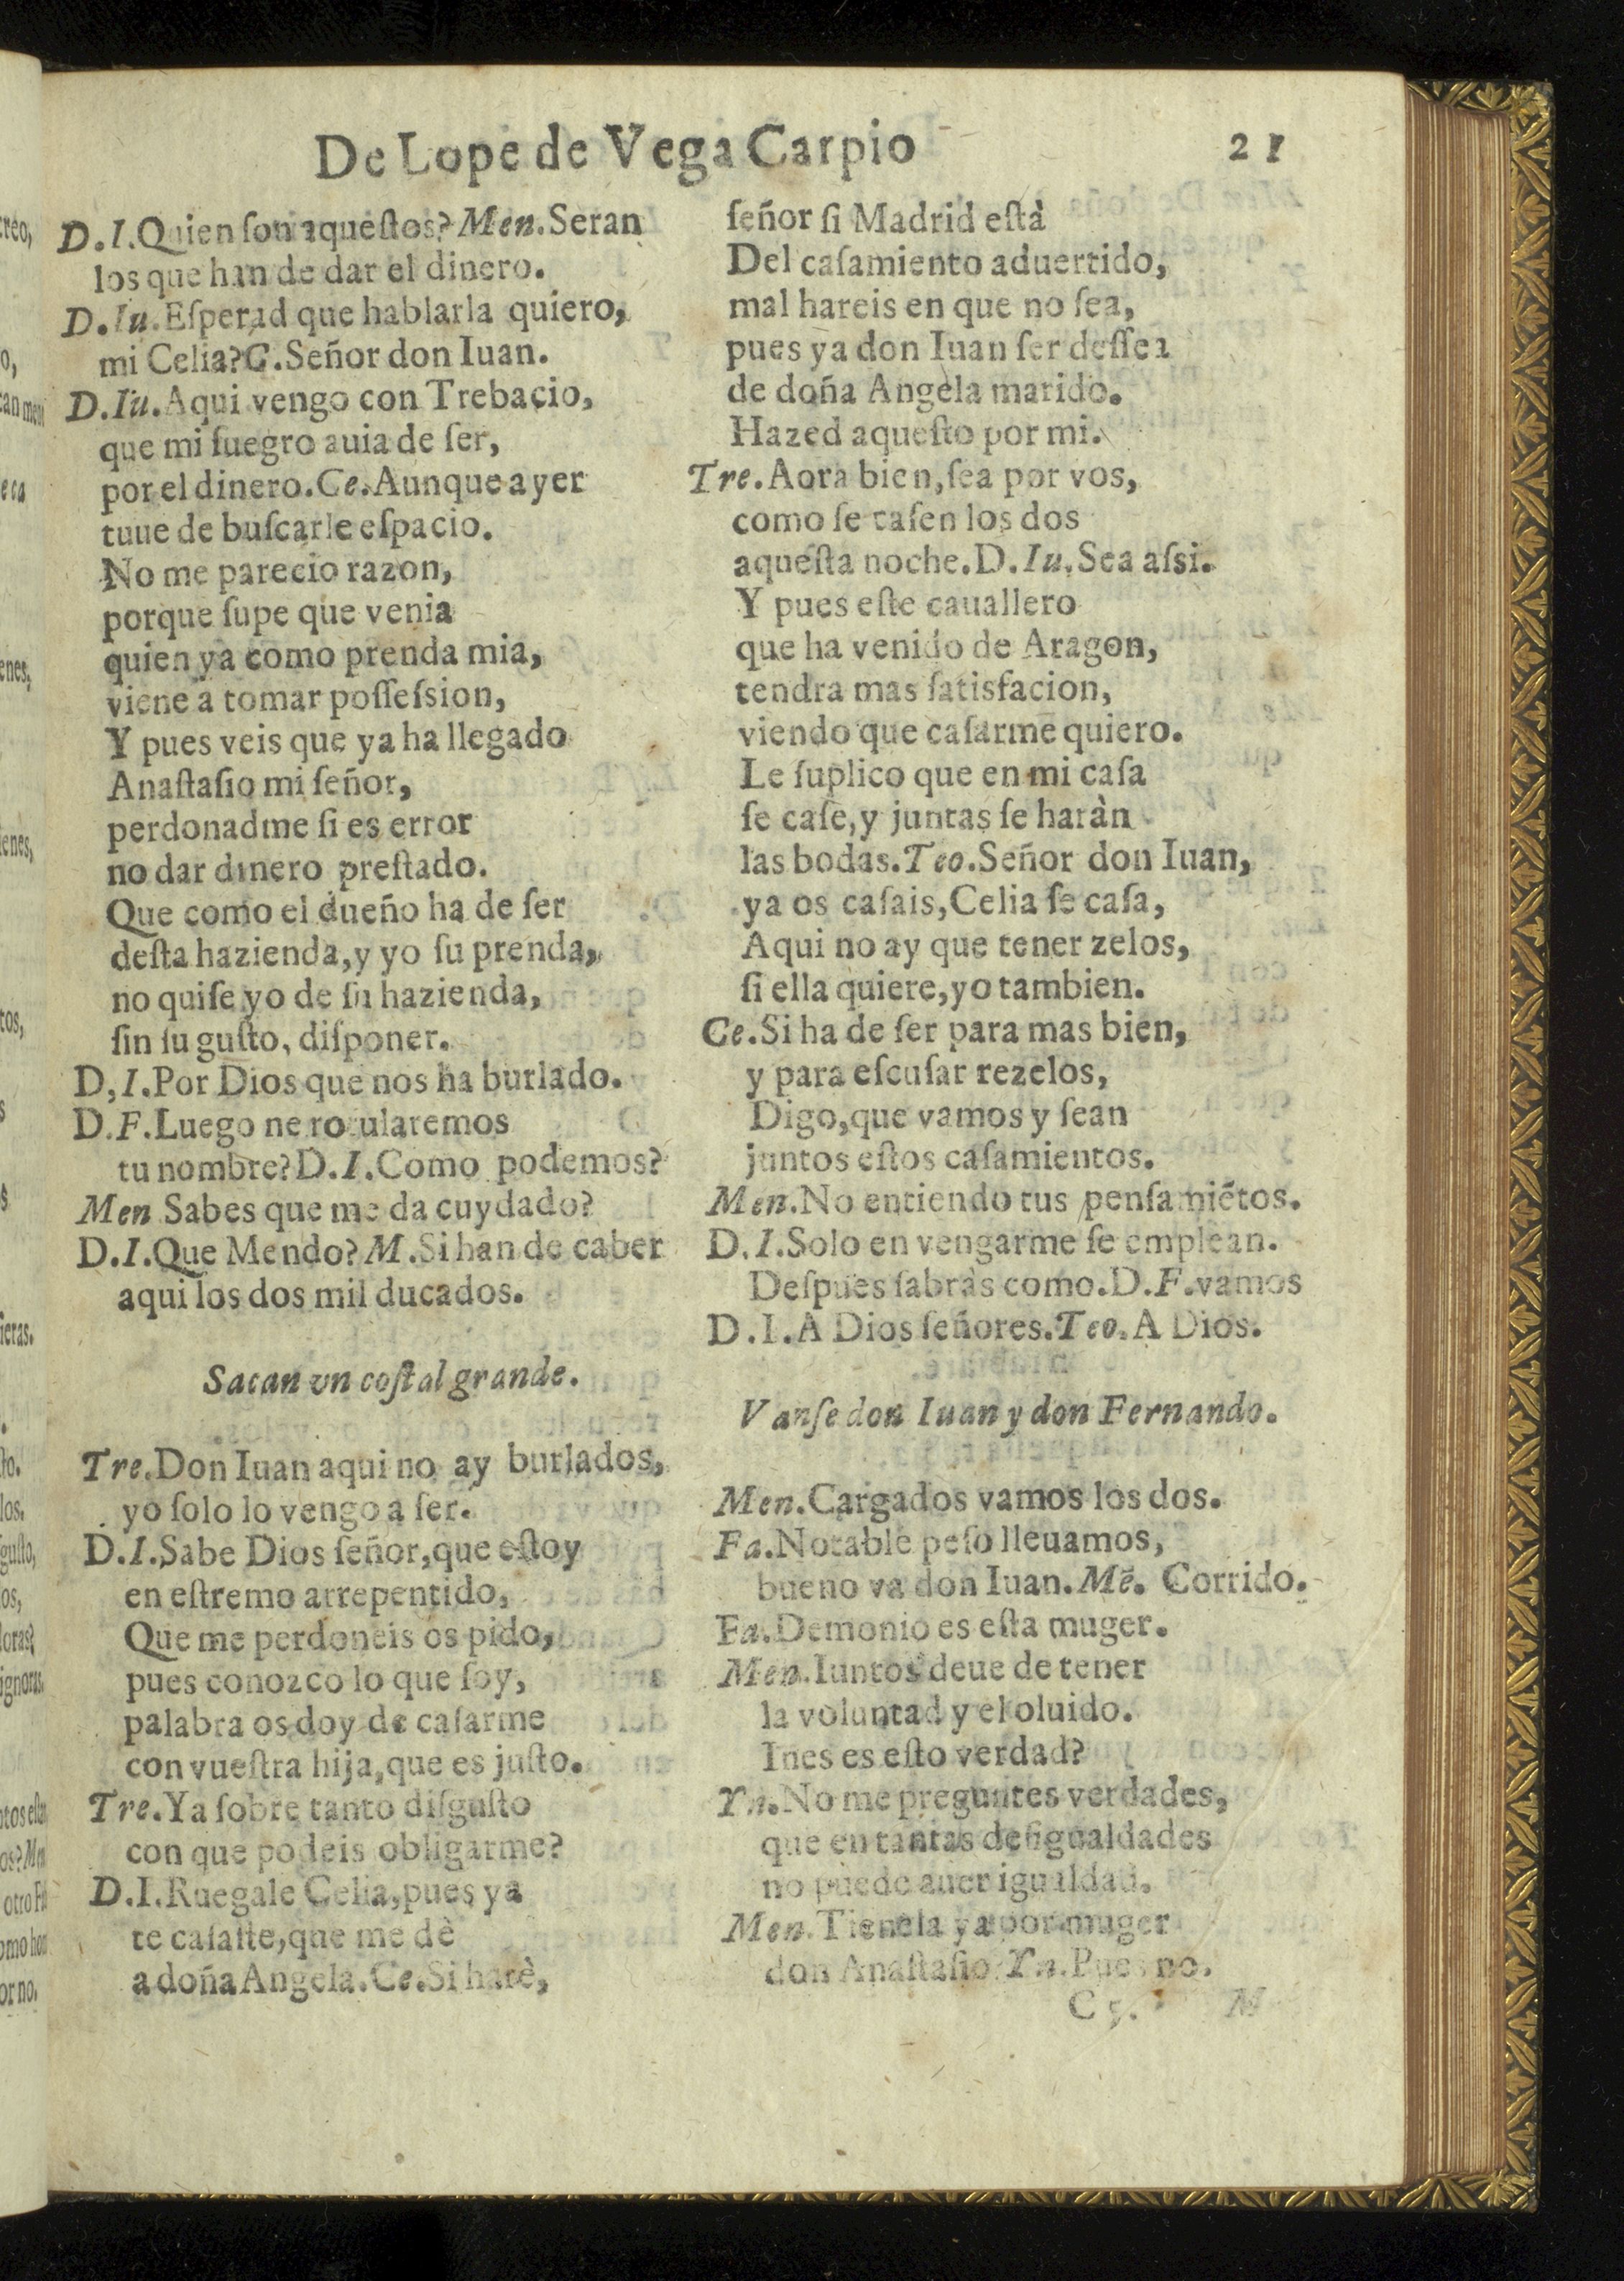 De Lope de Vega Carpio
21
D.I.Quien ſon aqueſtos? Men.Seran
los que han de dar el dinero.
D.Iu.Eſperad que hablarla quiero,
mi Celia? C.Señor don Iuan.
D.Iu.Aqui vengo con Trebacio,
que mi ſuegro auia de ſer,
por el dinero.Ce.Aunque ayer
tuue de buſcarle eſpacio.
No me parecio razon,
porque ſupe que venia
quien ya como prenda mia,
viene a tomar poſſeſsion,
Y pues veis que ya ha llegado
Anaſtaſio mi ſeñor,
perdonadme ſi es error
no dar dinero preſtado.
Que como el dueño ha de ſer
deſta hazienda,y yo ſu prenda,
no quiſe yo de ſu hazienda,
ſin ſu guſto, diſponer.
D,I.Por Dios que nos ha burlado.
D.F.Luego ne rotularemos
tu nombre? D.I.Como podemos?
Men Sabes que me da cuydado?
D.I.Que Mendo? M.Si han de caber
aqui los dos mil ducados.
Sacan vn coſtal grande.
Tre.Don Iuan aqui no ay burlados,
yo ſolo lo vengo a ſer.
D.I.Sabe Dios ſeñor,que eſtoy
en eſtremo arrepentido,
Que me perdoneis os pido,
pues conozco lo que ſoy,
palabra os doy de caſarme
con vueſtra hija,que es juſto.
Tre.Ya ſobre tanto diſguſto
con que podeis obligarme?
D.I.Ruegale Celia,pues ya
te caſaſte,que me dè
a doña Angela.Ce.Si harè,
ſeñor ſi Madrid eſtà
Del caſamiento aduertido,
mal hareis en que no ſea,
pues ya don Iuan ſer deſſea
de doña Angela marido.
Hazed aqueſto por mi.
Tre.Aora bien,ſea por vos,
como ſe caſen los dos
aqueſta noche.D.Iu.Sea aſsi.
Y pues eſte cauallero
que ha venido de Aragon,
tendra mas ſatisfacion,
viendo que caſarme quiero.
Le ſuplico que en mi caſa
ſe caſe,y juntas ſe haràn
las bodas.Teo.Señor don Iuan,
ya os caſais,Celia ſe caſa,
Aqui no ay que tener zelos,
ſi ella quiere,yo tambien.
Ce.Si ha de ſer para mas bien,
y para eſcuſar rezelos,
Digo,que vamos y ſean
juntos eſtos caſamientos.
Men.No entiendo tus penſamiẽtos.
D.I.Solo en vengarme ſe emplean.
Deſpues ſabràs como.D.F.vamos
D.I.A Dios ſeñores.Teo.A Dios.
Vanſe don Iuan y don Fernando.
Men.Cargados vamos los dos.
Fa.Notable peſo lleuamos,
bueno va don Iuan.Mẽ. Corrido.
Fa.Demonio es eſta muger.
Men.Iuntos deue de tener
la voluntad y el oluido.
Ines es eſto verdad?
Yn.No me preguntes verdades,
que en tantas deſigualdades
no puede auer igualdad.
Men.Tienela ya por muger
don Anaſtaſio? Yn.Pues no.
C 5. M